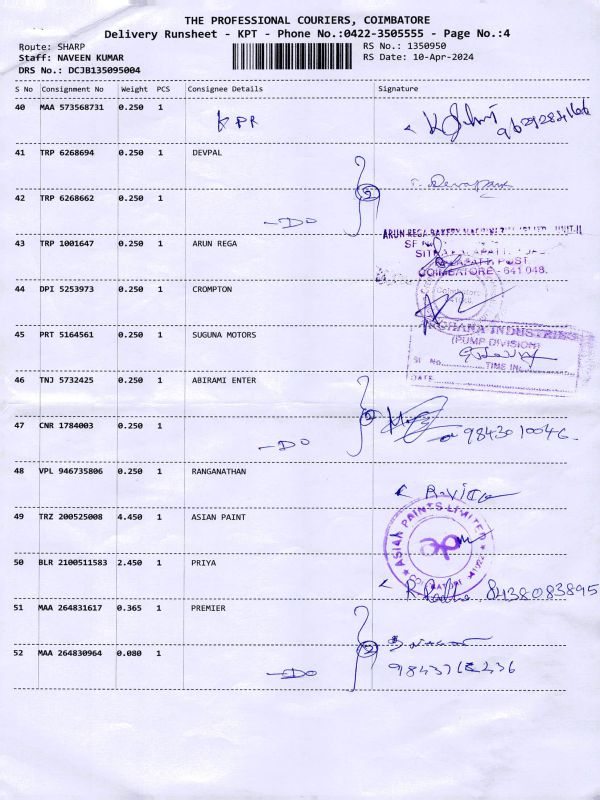 THE PROFESSIONAL COURIERS, COIMBATORE
Delivery Runsheet - KPT - Phone No.:0422-3505555 - Page No.:4
Route: SHARP RS No.: 1350950
Staff: NAVEEN KUMAR RS Date: 10-Apr-2024
DRS No.: DCJB135095004
S No Consignment No Weight PCS Consignee Details Signature
40 MAA 573568731 0.250 1 KPR
41 TRP 6268694 0.250 1 DEVPAL
2
42 TRP 6268662 0.250 1 -DO
ARUN REGA BAKERY
43 TRP 1001647 0.250 1 ARUN REGA
POST
COIMBATORE - 641 048.
44 DPI 5253973 0.250 1 CROMPTON
INDUSTRIES
45 PRT 5164561 0.250 1 SUGUNA MOTORS
(PUMP DIVISION)
Sl No. TIME IN:
DATE
46 TNJ 5732425 0.250 1 ABIRAMI ENTER
2
47 CNR 1784003 0.250 1 -DO 9843010046
48 VPL 946735806 0.250 1 RANGANATHAN
49 TRZ 200525008 4.450 1 ASIAN PAINT
ASIAN PAINTS LIMITED
ap
50 BLR 2100511583 2.450 1 PRIYA
8438083895
51 MAA 264831617 0.365 1 PREMIER
2
52 MAA 264830964 0.080 1 -DO